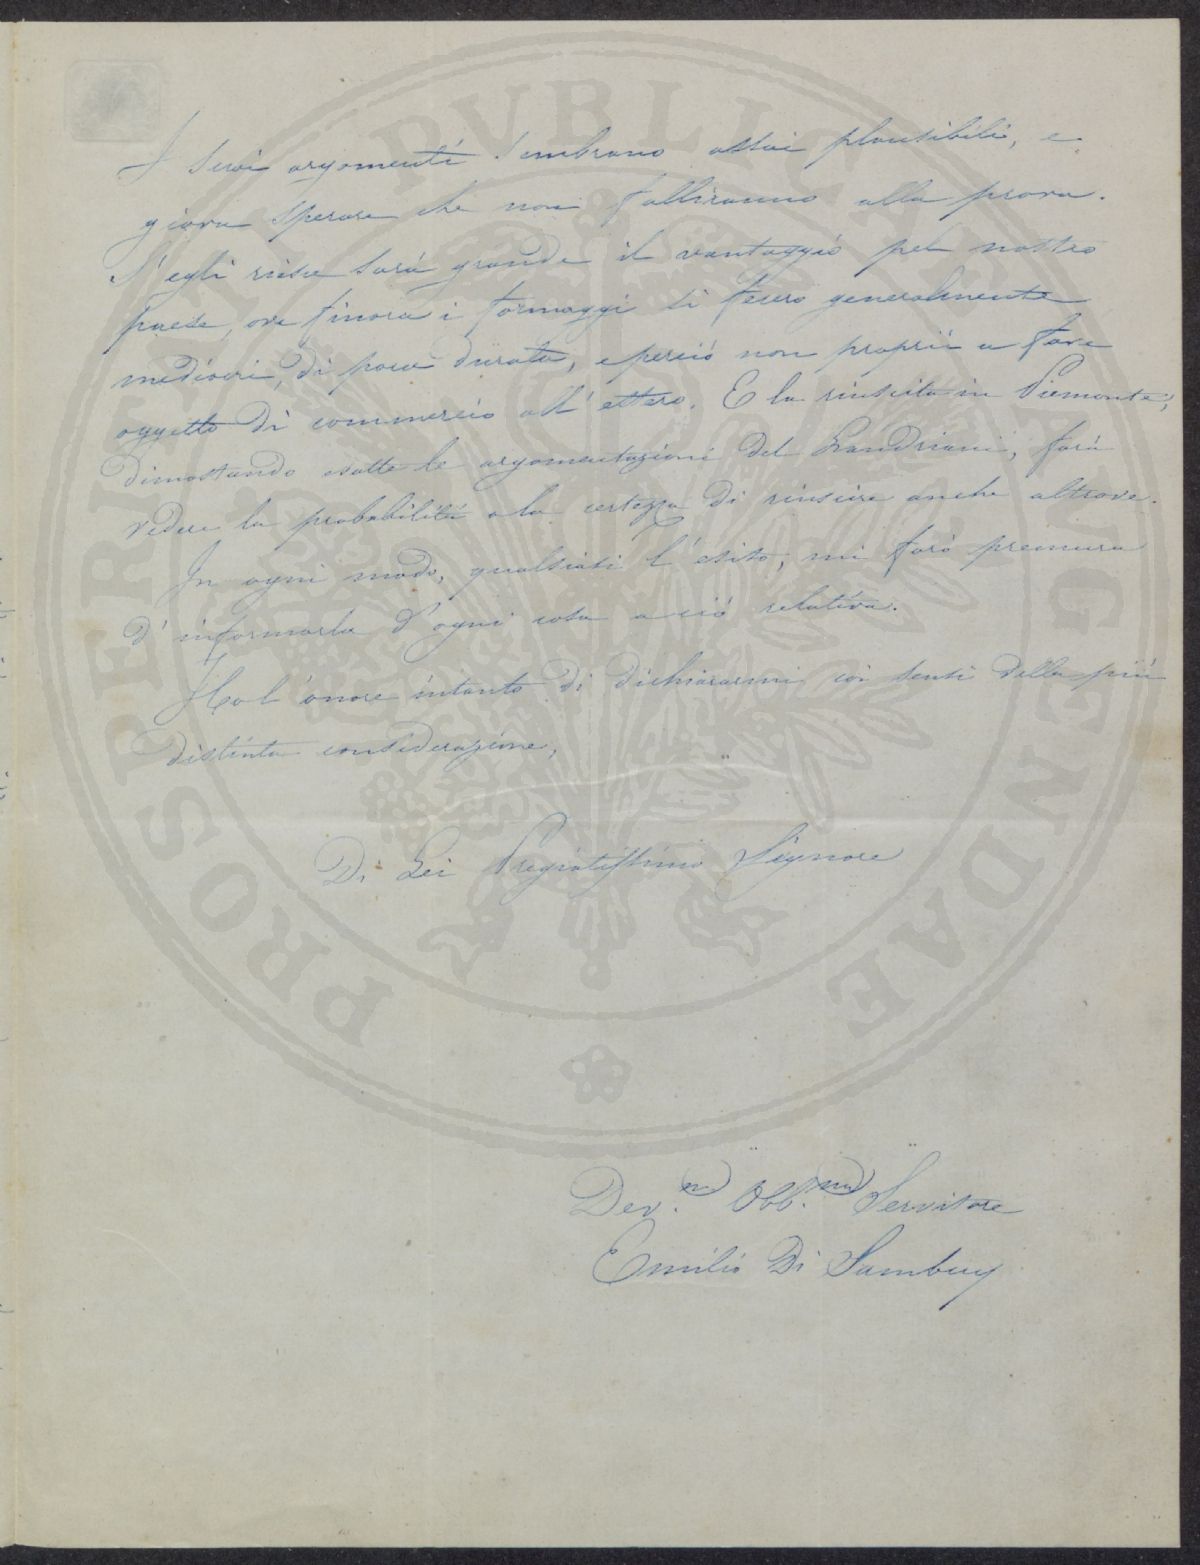 I suoi argomenti sembrano assai plausibili, e
giova sperare che non falliranno alla prova.
S'egli riesce sarà grande il vantaggio pel nostro
paese, ove finora i formaggi si fecero generalmente
mediocri, di poca durata, e perciò non proprii a fare
oggetto di commercio all'estero. E la riuscita in Piemonte,
dimostando esatte le argomentazioni del Landriani, farà
vedere la probabilità o la certezza di riuscire anche altrove.
In ogni modo, qualsiasi l'esito, mi farò premura
d'informarla d'ogni cosa a ciò relativa.
Ho l'onore intanto di dichiararmi coi sensi della più
distinta considerazione,
Di Lei Pregiatissimo Signore
Dev.mo Obb.mo Servitore
Emilio Di Sambuy
PROSPERITATI PUBLICAE AUGENDAE